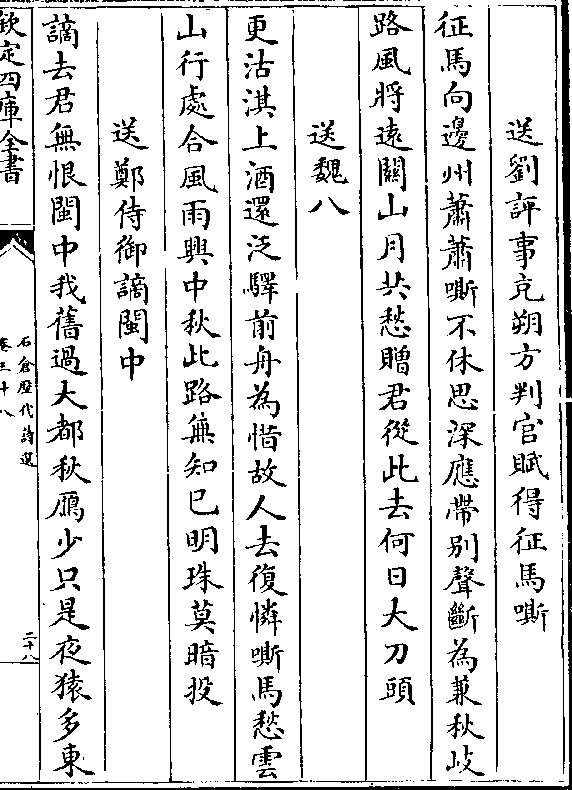 送劉評事充朔方判官賦得征馬嘶
征馬向邊州蕭蕭嘶不休思深應帶别聲斷為兼秋岐
路風將遠關山月共愁贈君從此去何日大刀頭
送魏八
更沽淇上酒還泛驛前舟為惜故人去復憐嘶馬愁雲
山行處合風雨興中秋此路無知已明珠莫暗投
送鄭侍御謫閩中
謫去君無恨閩中我舊過大都秋鴈少只是夜猿多東
欽定四庫全書
石倉歷代詩選
卷三十八
二十八